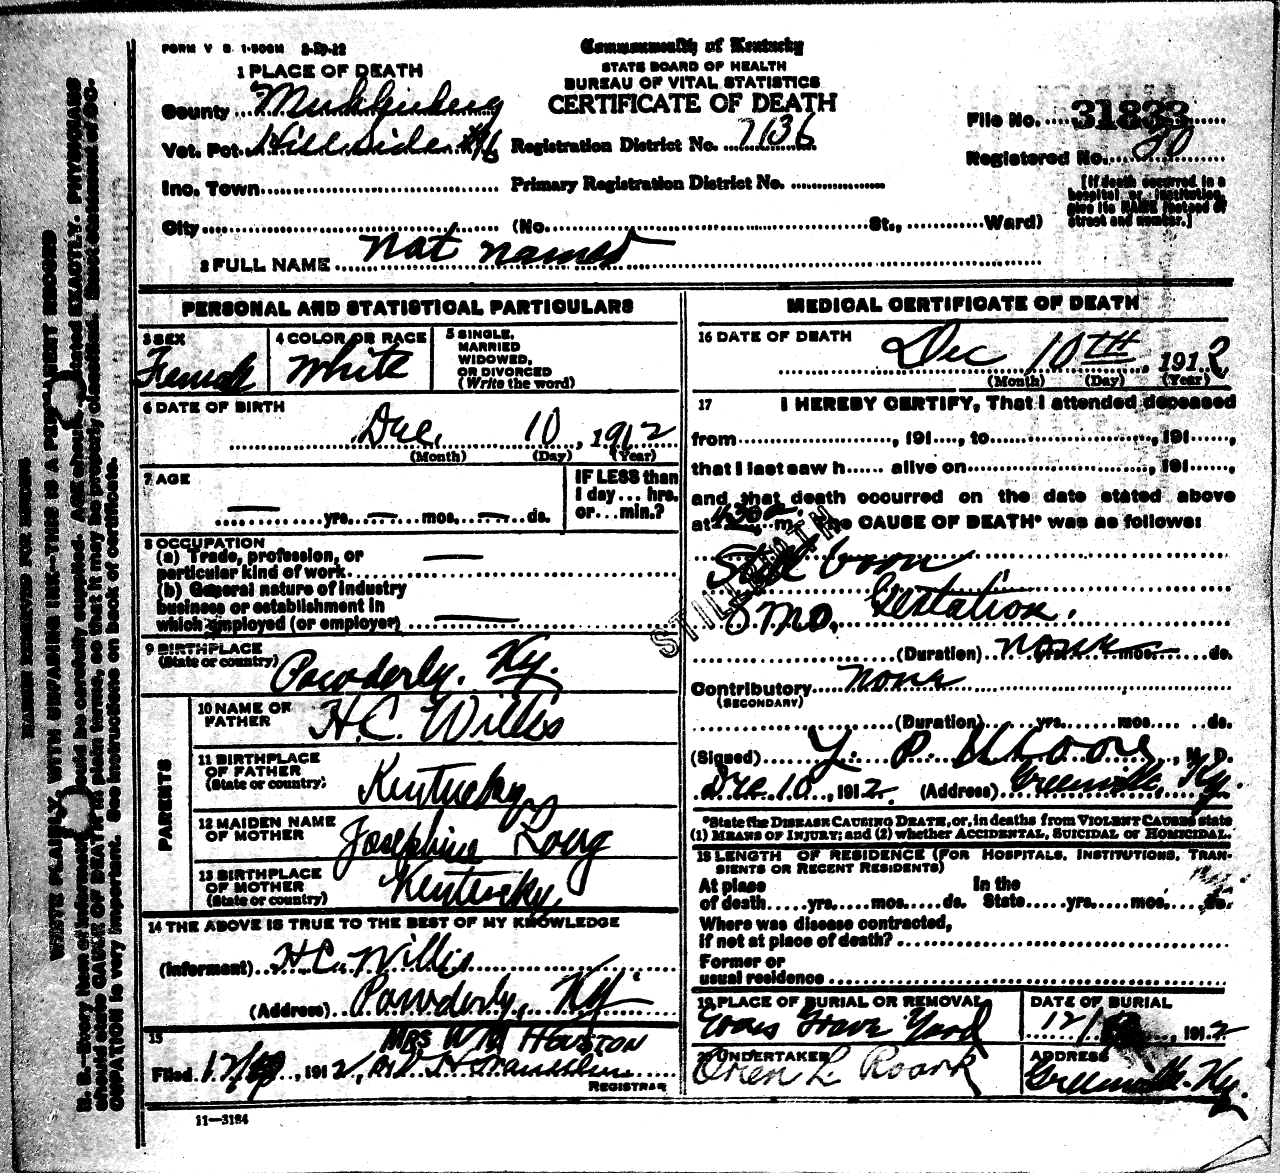 FORM V S. 1-500M 2-19-12
Commonwealth of Kentucky
STATE BOARD OF HEALTH
BUREAU OF VITAL STATISTICS
CERTIFICATE OF DEATH
1 PLACE OF DEATH
County Muhlenberg
Vot. Pct. Hillside #6
Registration District No. 7136
File No. 31833
Registered No. 20
Inc. Town
Primary Registration District No.
[If death occurred in a hospital or institution, give its NAME instead of street and number.]
City (No. St., Ward)
2 FULL NAME Not named
PERSONAL AND STATISTICAL PARTICULARS
3 SEX Female
4 COLOR OR RACE White
5 SINGLE, MARRIED WIDOWED, OR DIVORCED (Write the word)
6 DATE OF BIRTH
Dec. 10, 1912
(Month) (Day) (Year)
7 AGE
— yrs. — mos. — ds.
IF LESS than 1 day... hrs. or... min.?
8 OCCUPATION
(a) Trade, profession, or particular kind of work —
(b) General nature of industry business or establishment in which employed (or employer) —
9 BIRTHPLACE (State or country) Powderly. Ky.
PARENTS
10 NAME OF FATHER H.C. Willis
11 BIRTHPLACE OF FATHER (State or country) Kentucky
12 MAIDEN NAME OF MOTHER Josephine
13 BIRTHPLACE OF MOTHER (State or country) Kentucky
14 THE ABOVE IS TRUE TO THE BEST OF MY KNOWLEDGE
(Informant) H C. Willis
(Address) Powderly, Ky.
15
MRS W M HOUSTON
Filed 12/ , 1912,
REGISTRAR
11—3184
MEDICAL CERTIFICATE OF DEATH
16 DATE OF DEATH
Dec 10TH, 1912
(Month) (Day) (Year)
17 I HEREBY CERTIFY, That I attended deceased
from , 191 , to , 191 ,
that I last saw h alive on , 191 ,
and that death occurred on the date stated above
at m. The CAUSE OF DEATH* was as follows:
STILLBIRTH
Still born
8 mo. Gestation.
(Duration) none yrs. mos. ds.
Contributory none
(SECONDARY)
(Duration) yrs. mos. ds.
(Signed) M. D.
Dec 10, 1912. (Address) Greenville Ky.
*State the DISEASE CAUSING DEATH, or, in deaths from VIOLENT CAUSES state
(1) MEANS OF INJURY; and (2) whether ACCIDENTAL, SUICIDAL or HOMICIDAL.
18 LENGTH OF RESIDENCE (FOR HOSPITALS, INSTITUTIONS, TRANSIENTS OR RECENT RESIDENTS)
At place of death yrs. mos. ds. In the State yrs. mos. ds.
Where was disease contracted,
if not at place of death?
Former or
usual residence
19 PLACE OF BURIAL OR REMOVAL
Grave Yard
DATE OF BURIAL
12/ 1912
20 UNDERTAKER
Orien L. Roark
ADDRESS
Greenville. Ky.
MARGIN RESERVED FOR BINDING
WRITE PLAINLY, WITH UNFADING INK—THIS IS A PERMANENT RECORD
N. B.—Every item of information should be carefully supplied. AGE should be stated EXACTLY. PHYSICIANS
should state CAUSE OF DEATH in plain terms, so that it may be properly classified. Exact statement of OC-
CUPATION is very important. See instructions on back of certificate.